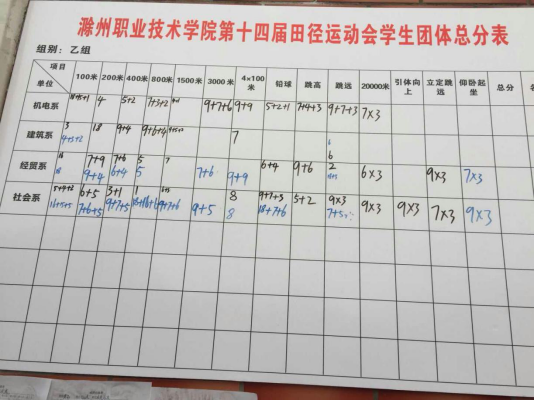 滁州职业技术学院第十四届田径运动会学生团体总分表
组别：乙组
项目 单位 100米 200米 400米 800米 1500米 3000米 4×100米 铅球 跳高 跳远 20000米 引体向上 立定跳远 仰卧起坐 总分
机电系 4 5+2 7+3+2 9+7+6 9+9 5+2+1 7+4+3 9+7+3 7×3
建筑系 3 18 9+4 9+6+4 7
9+3+2 6
经贸系 18 7+9 7+6 5 7 6+4 9+6 2 6×3 9×3 7×3
18 9+4 6+4 5 7+6 9+9
社会系 5+4+2 6+5 3+1 1 8 9+7+5 5+2 9×3 9×3 9×3 7×3 9×3
7+6+5 9+7+5 9+7+6 9+5 8 18+7+6